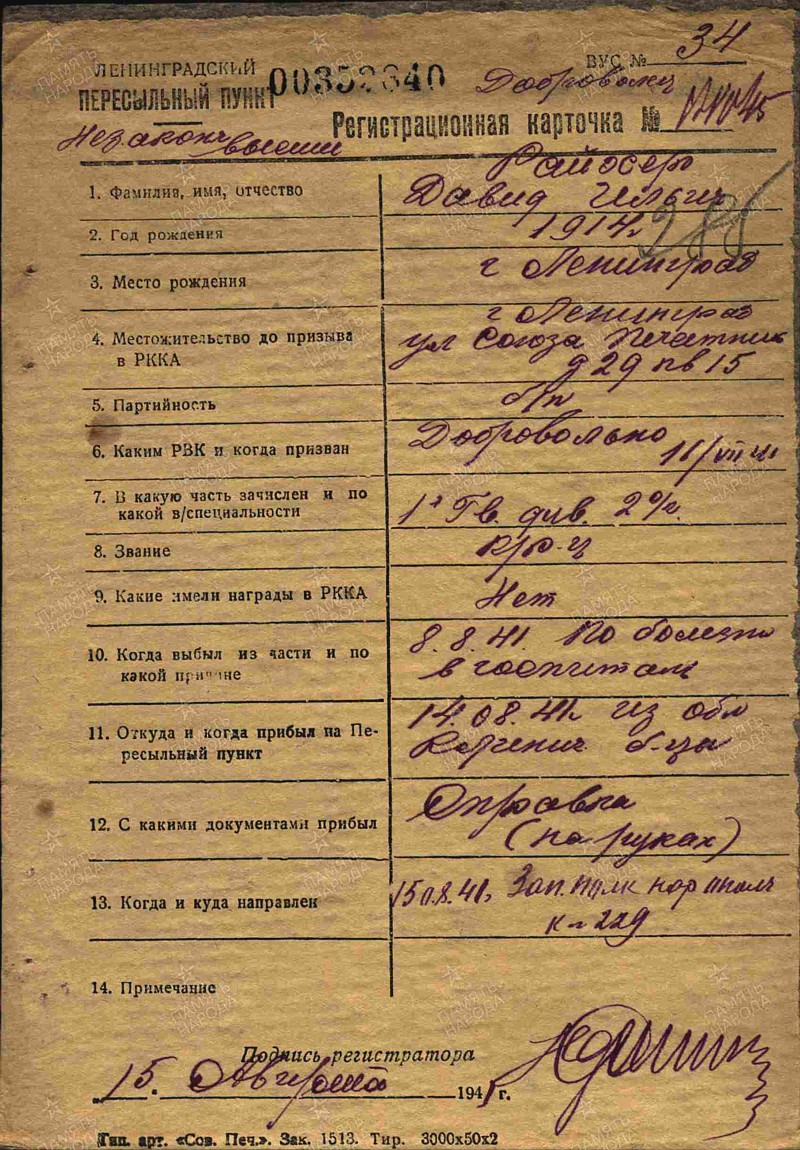 ЛЕНИНГРАДСКИЙ
ПЕРЕСЫЛЬНЫЙ ПУНКТ
00352340
ВУС № 34
Доброволец
Незаконч высшее
Регистрационная карточка №
1. Фамилия, имя, отчество
Давид Ильич
2. Год рождения
1914г
3. Место рождения
г Ленинград
4. Местожительство до призыва
в РККА
г Ленинград
ул Союза Печатник
д 29 кв 15
5. Партийность
б/п
6. Каким РВК и когда призван
Добровольно
11/VII 41
7. В какую часть зачислен и по
какой в/специальности
1я Гв. див. 2
8. Звание
кр-ц
9. Какие имели награды в РККА
Нет
10. Когда выбыл из части и по
какой причине
8.8.41. По болезни
в госпиталь
11. Откуда и когда прибыл на Пе-
ресыльный пункт
14.08.41г из обл
б-цы
12. С какими документами прибыл
Справка
(на руках)
13. Когда и куда направлен
15.08.41г Зап. полк
229
14. Примечание
Подпись регистратора
15. Августа 1941 г.
Тип. арт. «Сов. Печ.». Зак. 1513. Тир. 3000х50х2
ПАМЯТЬ
НАРОДА